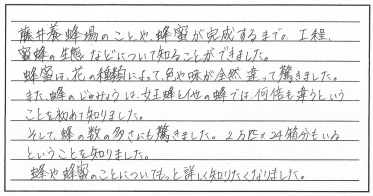 藤井養蜂場のことや、蜂蜜が完成するまでの工程、
蜜蜂の生態などについて知ることができました。
蜂蜜は、花の種類によって、色や味が全然違って驚きました。
また、蜂のじゅみょうは、女王蜂と他の蜂では、何倍も違うという
ことを初めて知りました。
そして、蜂の数の多さにも驚きました。2万匹×24箱分もいる
ということを知りました。
蜂や蜂蜜のことについてもっと詳しく知りたくなりました。